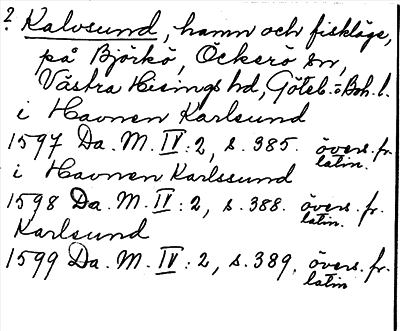 2. Kalvsund, hamn och fiskläge,
på Björkö, Öckerö sn,
Västra Hisings hd, Göteb. o. Boh. l.
i Havnen Karlsund
1597 Da. M. IV: 2, s. 385. övers. fr. latin.
i Havnen Karlssund
1598 Da. M. IV: 2, s. 388. övers. fr. latin.
Karlsund
1599 Da. M. IV: 2, s. 389. övers. fr. latin